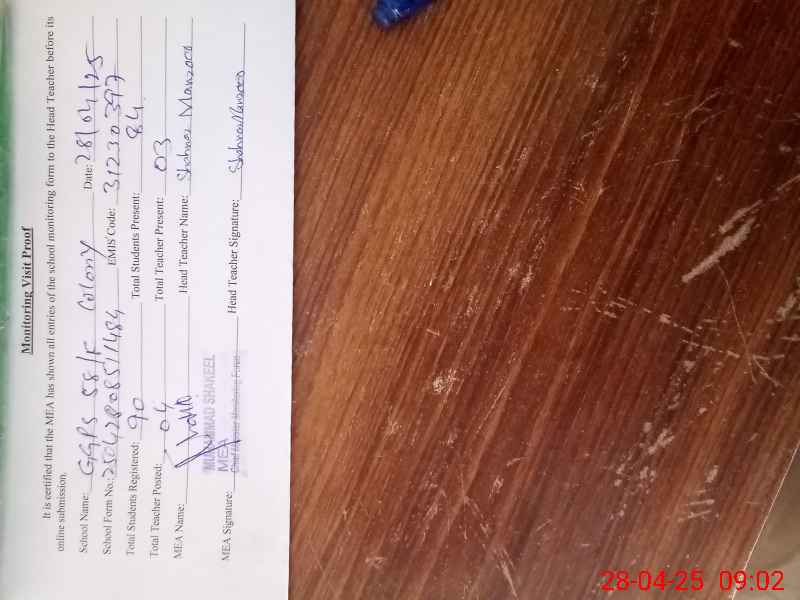 Monitoring Visit Proof
It is certified that the MEA has shown all entries of the school monitoring form to the Head Teacher before its
online submission.
School Name: GGPS 58/F Colony Date: 28/04/25
School Form No.: 250428085711484 EMIS Code: 31230397
Total Students Registered: 90 Total Students Present: 84
Total Teacher Posted: 04 Total Teacher Present: 03
MEA Name: Head Teacher Name: Shahnaz Manzoor
MUHAMMAD SHAKEEL
MEA
Chief Minister Monitoring Force
MEA Signature: Head Teacher Signature: Shahnaz Manzoor
28-04-25 09:02